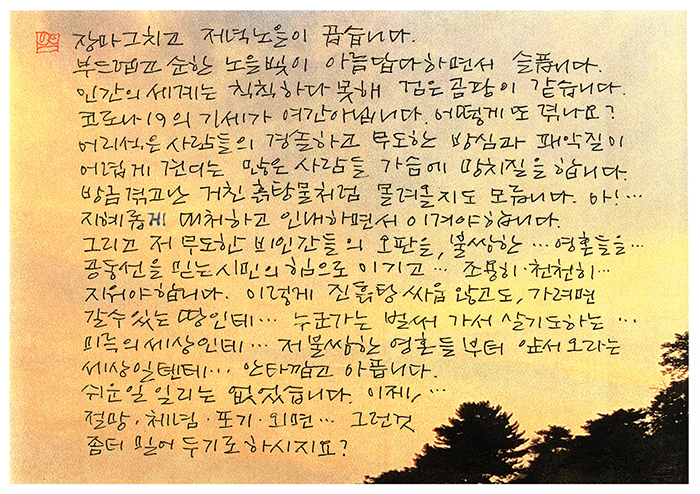 장마 그치고 저녁노을이 곱습니다.
부드럽고 순한 노을빛이 아름답다하면서 슬픕니다.
인간의 세계는 칙칙하다 못해 검은 곰팡이 같습니다.
코로나19의 기세가 여간아닙니다. 어떻게 또 겪나요?
어리석은 사람들의 경솔하고 무도한 방심과 패악질이
어렵게 견디는 많은 사람들 가슴에 망치질을 합니다.
방금 겪고난 거친 흙탕물처럼 몰려올지도 모릅니다. 아!…
지혜롭게 대처하고 인내하면서 이겨야합니다.
그리고 저 무도한 비인간들의 오판을, 불쌍한 … 영혼들을…
공동선을 믿는 시민의 힘으로 이기고 … 조용히·천천히…
지워야합니다. 이렇게 진흙탕 싸움 않고도, 가려면
갈수있는 땅인데… 누군가는 벌써 가서 살기도하는 …
피득의 세상인데… 저 불쌍한 영혼들부터 앞서오라는
세상일텐데… 안타깝고 아픕니다.
쉬운일 일리는 없었습니다. 이제,…
절망·체념·포기·외면… 그런것
좀더 밀어두기로 하시지요?